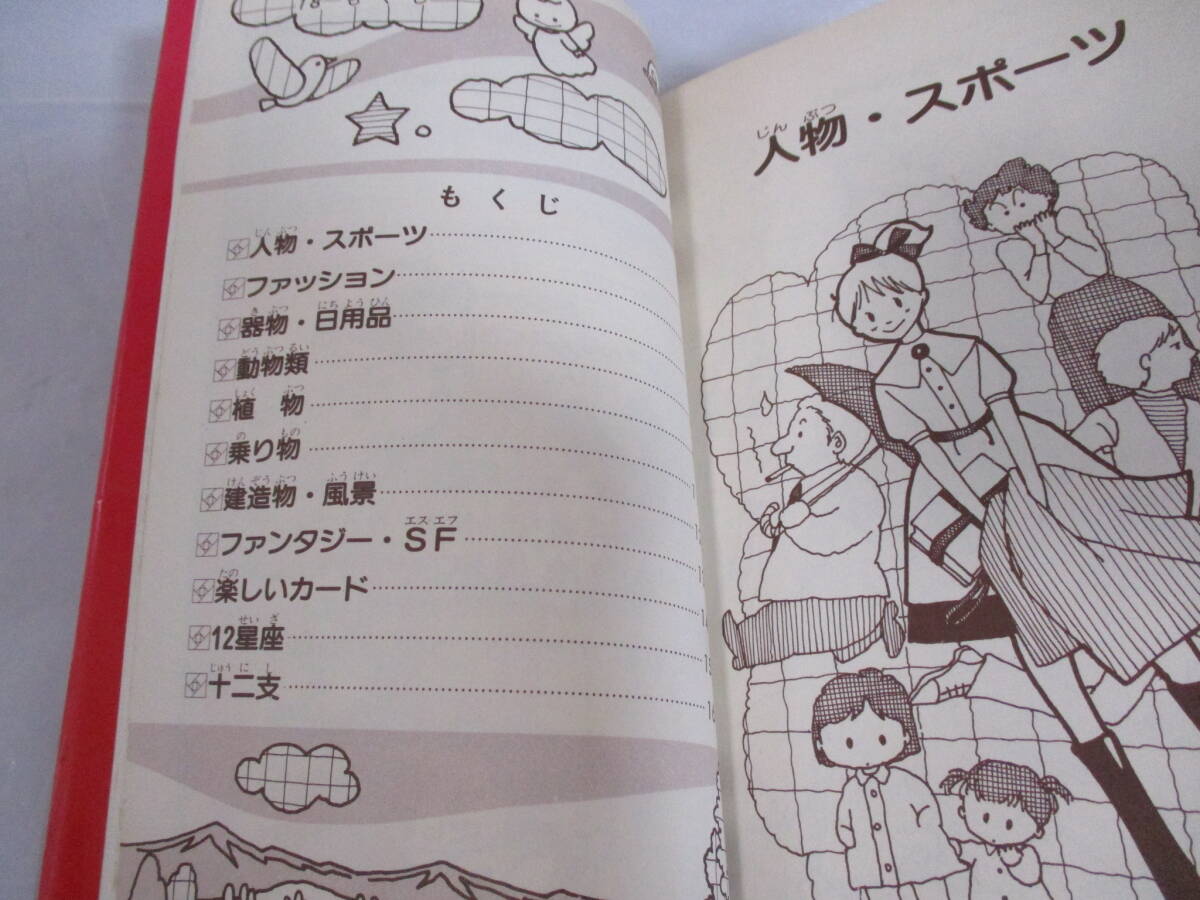 もくじ
人物・スポーツ
ファッション
器物・日用品
動物類
植物
乗り物
建造物・風景
ファンタジー・SF
楽しいカード
12星座
十二支
人物・スポーツ